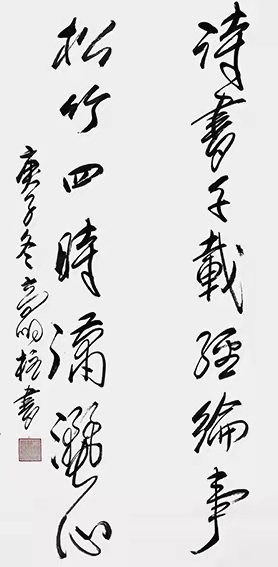 詩書千載經綸事
松竹四時瀟灑心
庚子冬高明書